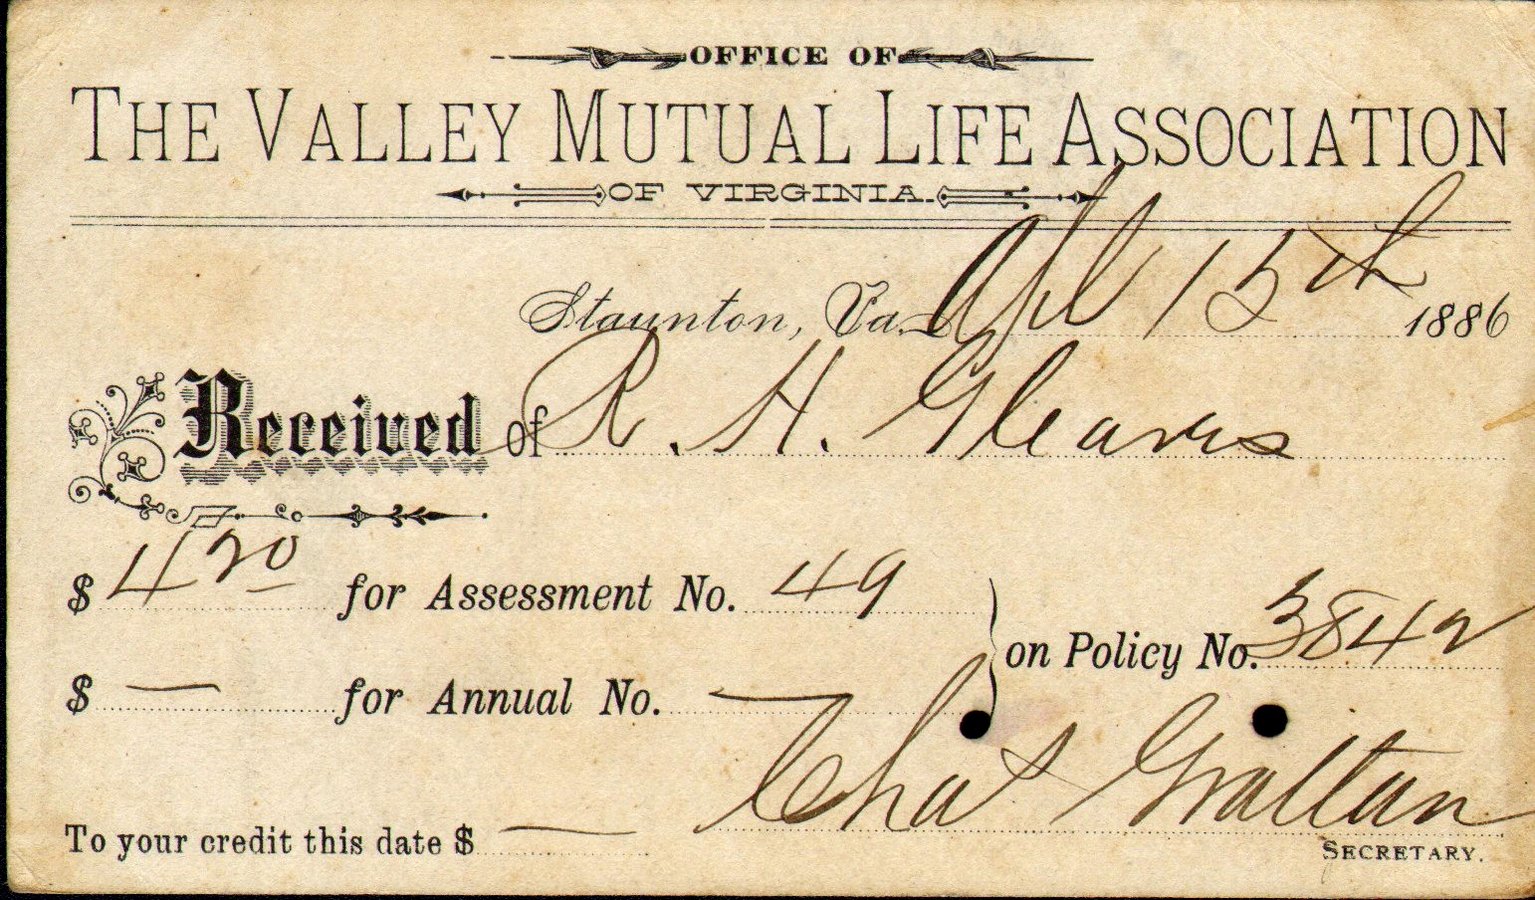 OFFICE OF
THE VALLEY MUTUAL LIFE ASSOCIATION
OF VIRGINIA.
Staunton, Va. Apl 15th 1886
Received of R. H. Gleaves
$ 4 20 for Assessment No. 49
on Policy No. 3842
$ — for Annual No. —
Chas Grattan
To your credit this date $ —
SECRETARY.